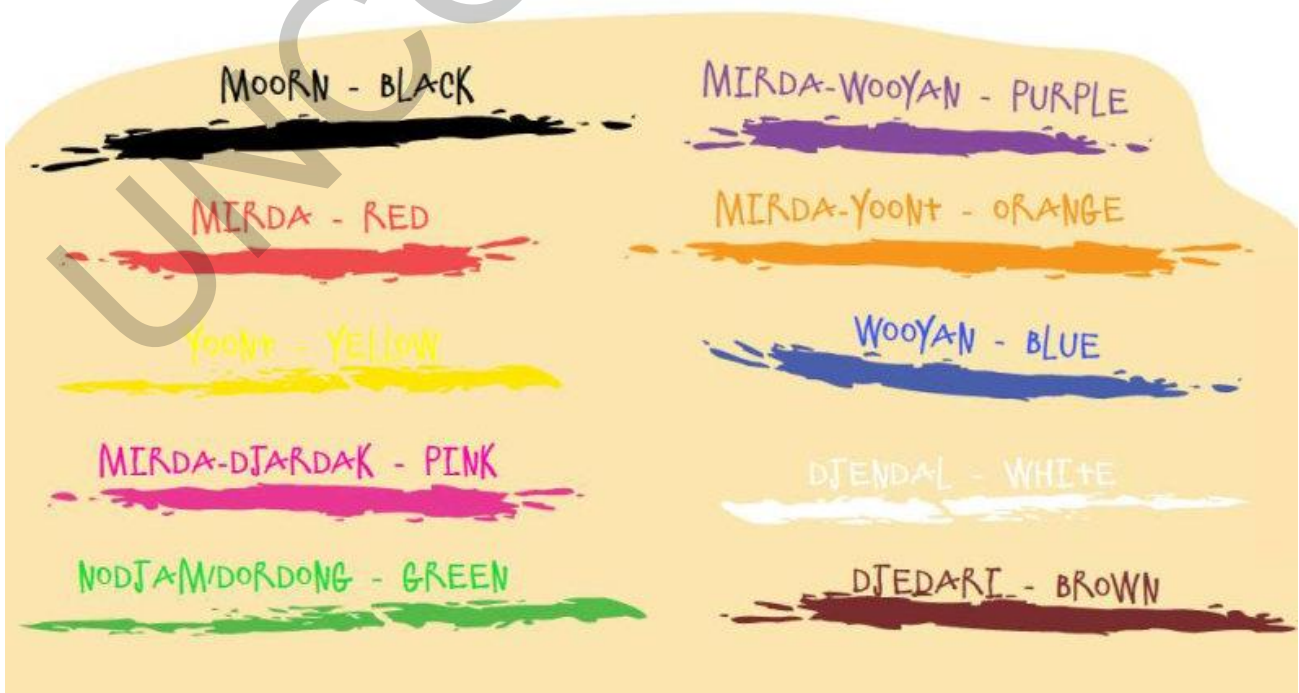 MOORN - BLACK
MIRDA - RED
YOONT - YELLOW
MIRDA-DJARDAK - PINK
NODJAM/DORDONG - GREEN
MIRDA-WOOYAN - PURPLE
MIRDA-YOONT - ORANGE
WOOYAN - BLUE
DJENDAL - WHITE
DJEDARI - BROWN
UNCO